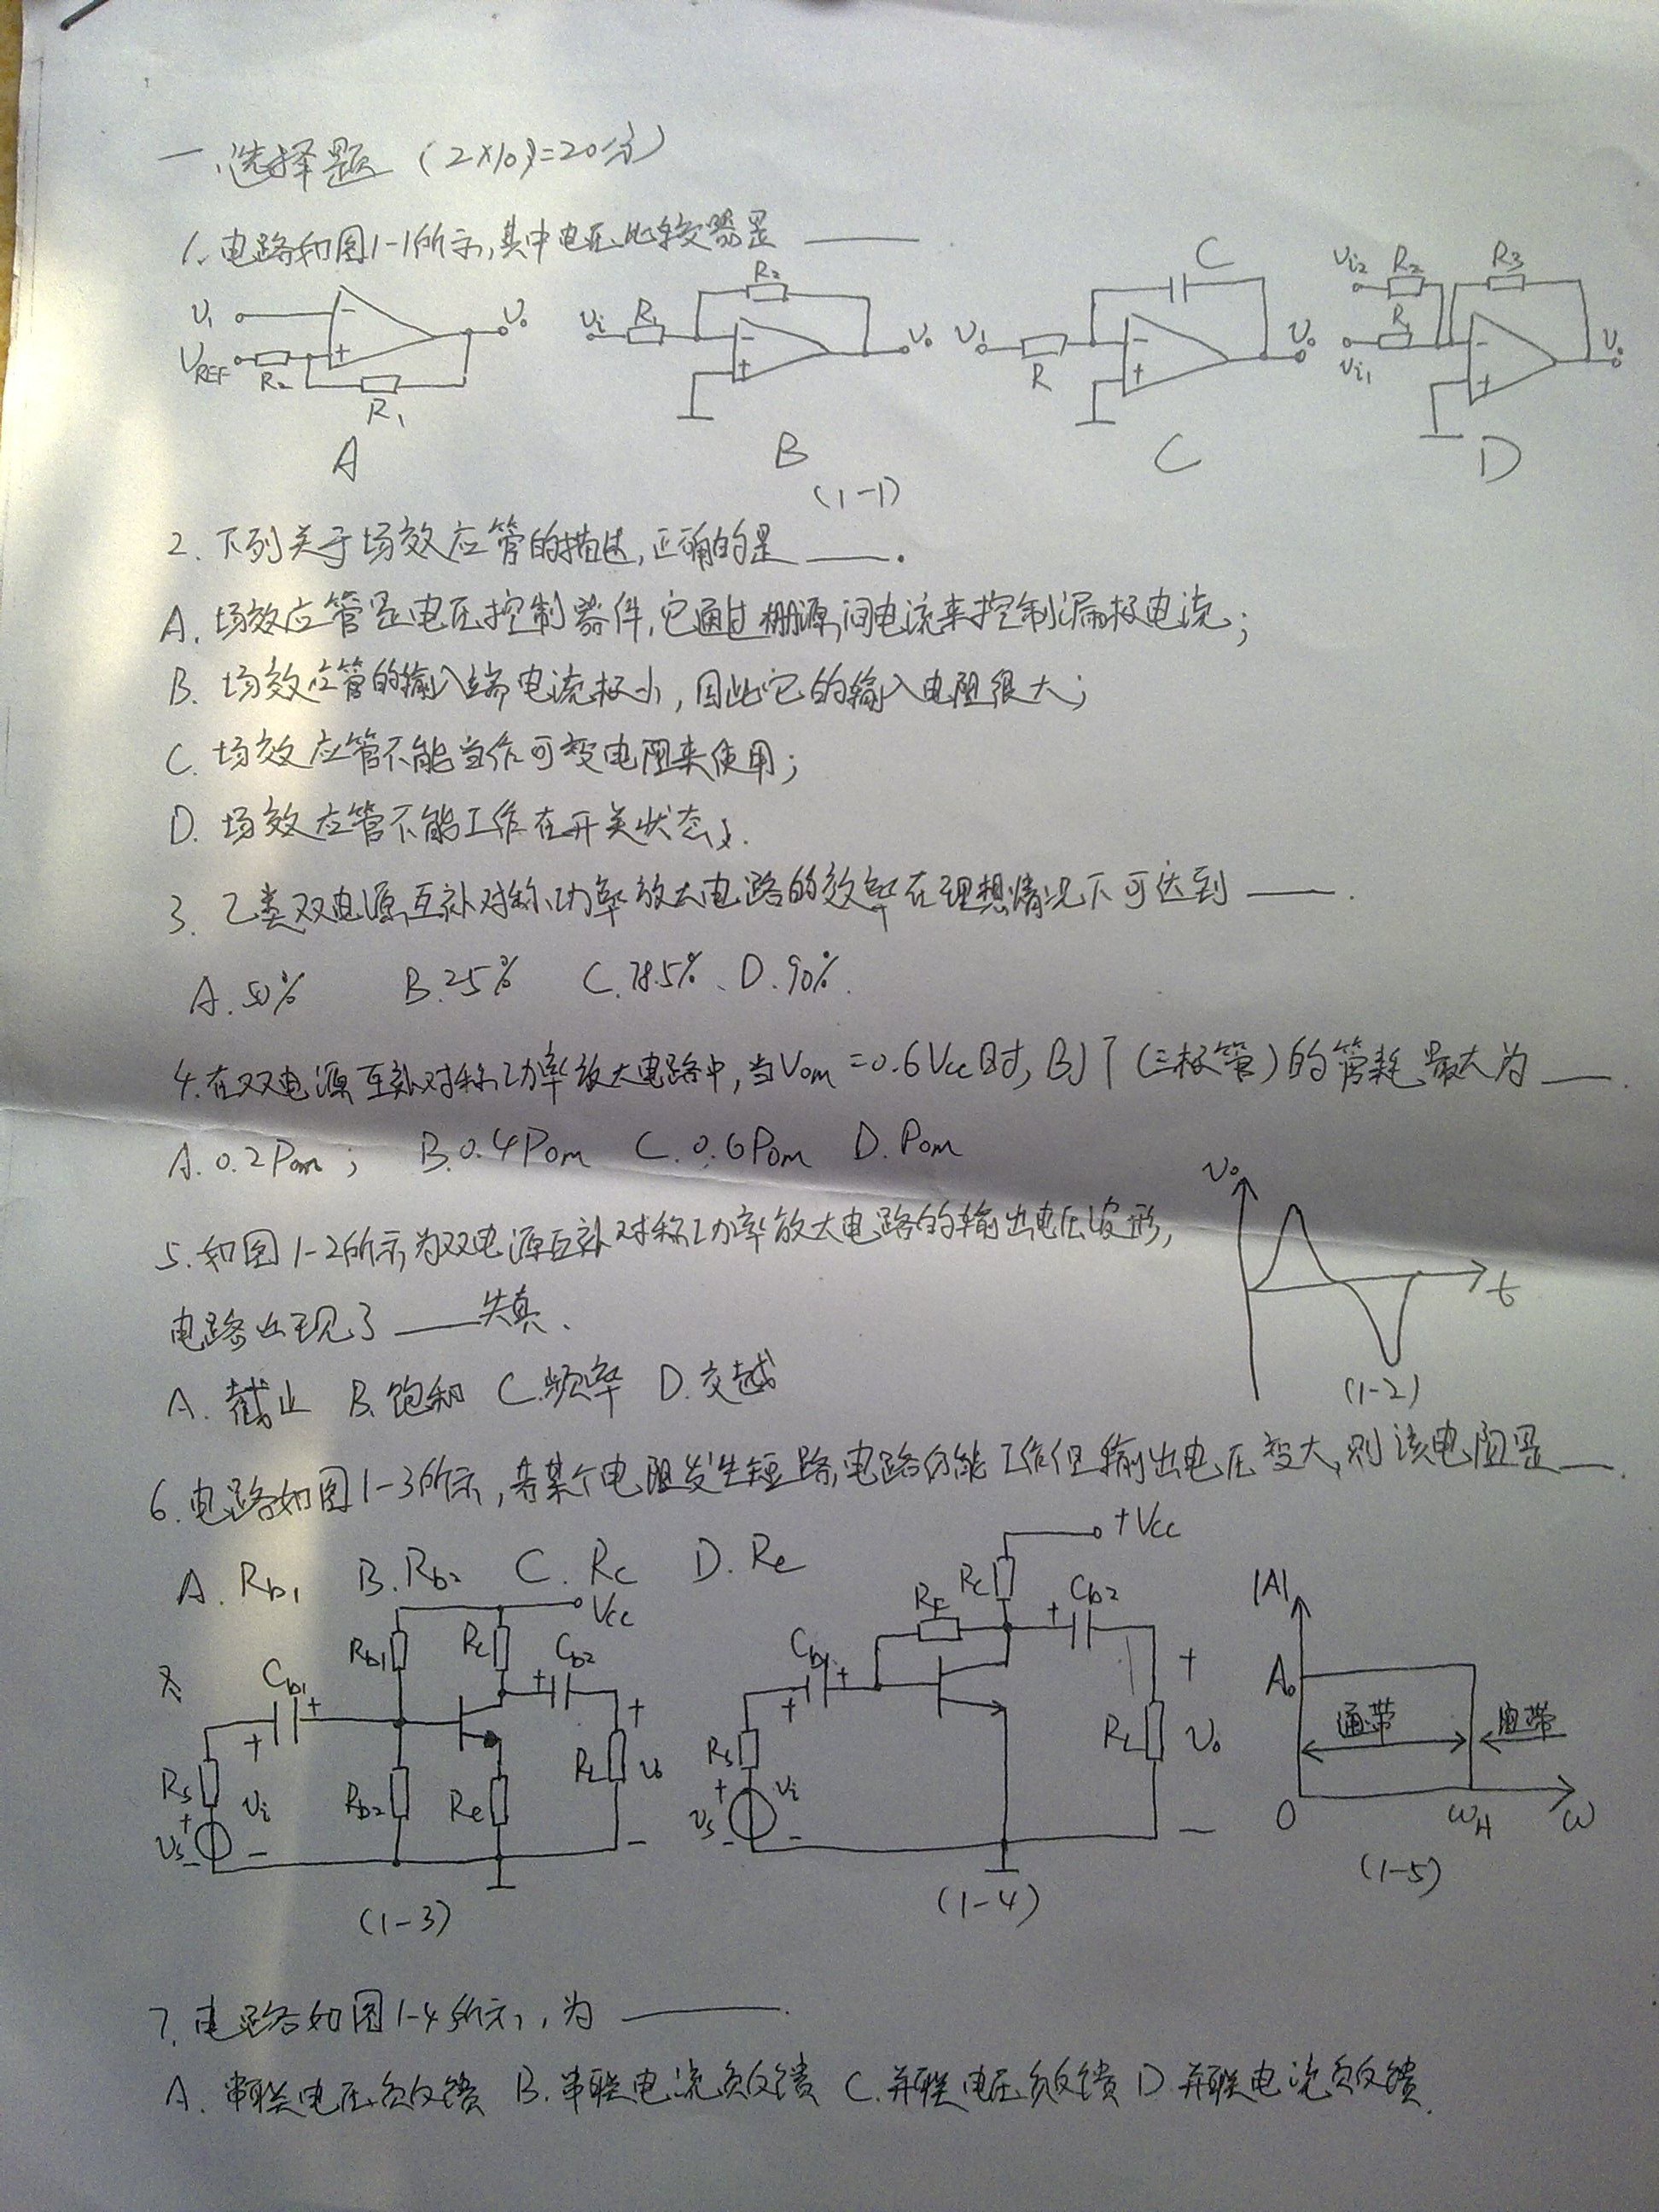 一、选择题 (2×10)=20分)
1. 电路如图1-1所示,其中电压比较器是 ____
V₁ VREF R₂ R₁ V₀ Vi R₁ R₂ V₀ V₁ R C V₀ Vi2 R₂ Vi1 R₁ R₃ V₀
A B C D
(1-1)
2. 下列关于场效应管的描述,正确的是 ____.
A. 场效应管是电压控制器件,它通过栅源间电流来控制漏极电流;
B. 场效应管的输入端电流极小,因此它的输入电阻很大;
C. 场效应管不能当作可变电阻来使用;
D. 场效应管不能工作在开关状态;.
3. 乙类双电源互补对称功率放大电路的效率在理想情况下可达到 ____.
A. 50% B. 25% C. 78.5%、D. 90%.
4. 在双电源互补对称功率放大电路中,当Vom=0.6Vcc时, BJT(三极管)的管耗最大为 ____.
A. 0.2Pom; B. 0.4Pom C. 0.6Pom D. Pom
5. 如图1-2所示为双电源互补对称功率放大电路的输出电压波形,
电路出现了 ____ 失真.
A. 截止 B. 饱和 C. 频率 D. 交越
V₀ t
(1-2)
6. 电路如图1-3所示,若某个电阻发生短路,电路仍能工作但输出电压变大,则该电阻是 ____.
A. Rb1 B. Rb2 C. Rc D. Re
Vcc Rb1 Rc Cb2 Cb1 + + + + Rs Vi Rb2 Re RL V₀ Vs + - - -
(1-3)
+Vcc Rc RF Cb2 + Cb1 + + + Rs Vi RL V₀ Vs + - - -
(1-4)
|A| A₀ 通带 阻带 O ωH ω
(1-5)
7. 电路如图1-4所示,为 ____.
A. 串联电压负反馈 B. 串联电流负反馈 C. 并联电压负反馈 D. 并联电流负反馈.